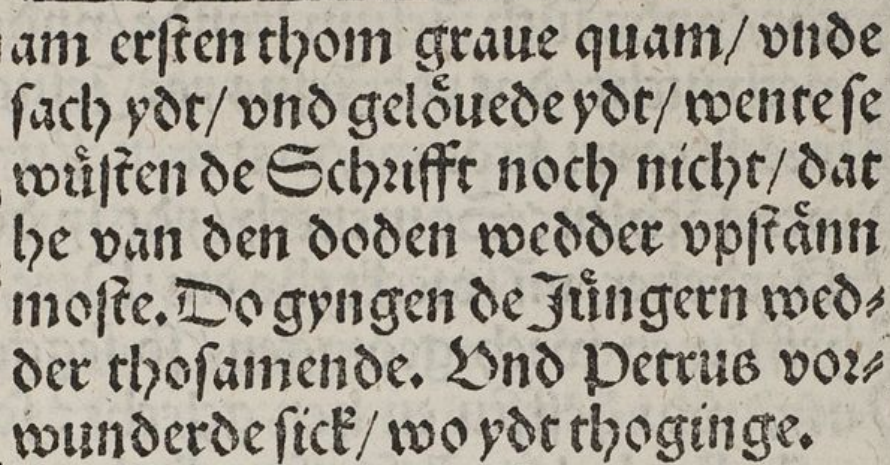 am ersten thom graue quam/ vnde
sach ydt/ vnd gelöuede ydt/ wente se
wüsten de Schrifft noch nicht/ dat
he van den doden wedder vpstänn
moste. Do gyngen de Jüngern wed⸗
der thosamende. Vnd Petrus vor⸗
wunderde sick/ wo ydt thoginge.